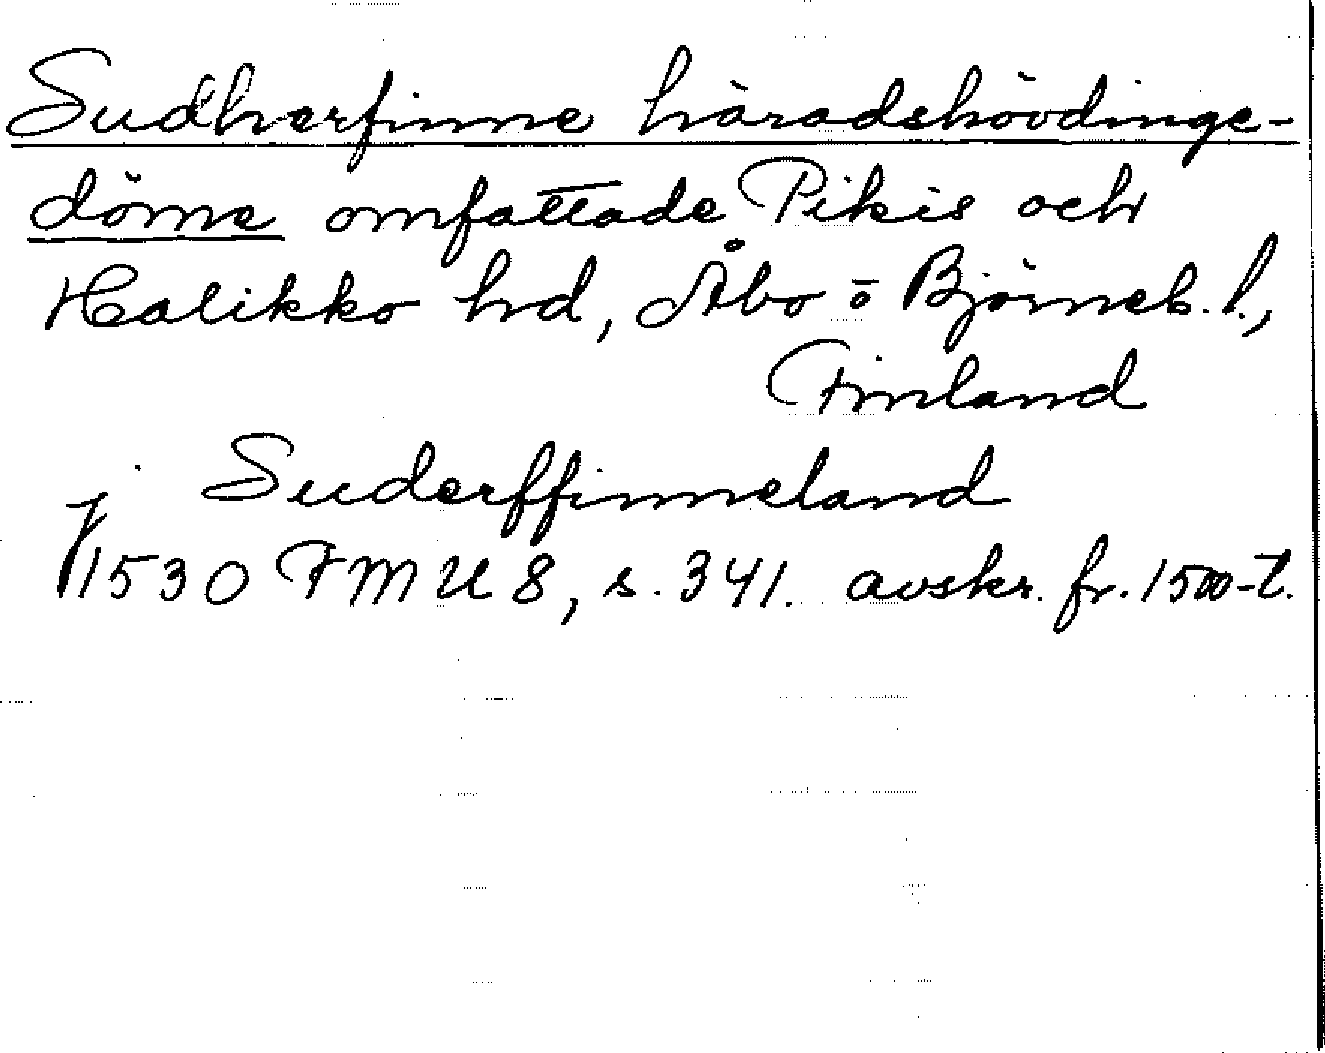 Sudherfinne häradshövdinge-
döme omfattade Pikis och
Halikko hd, Åbo o Björneb. l.,
Finland
Suderffinneland
1530 FMU 8, s. 341. avskr. fr. 1500-t.